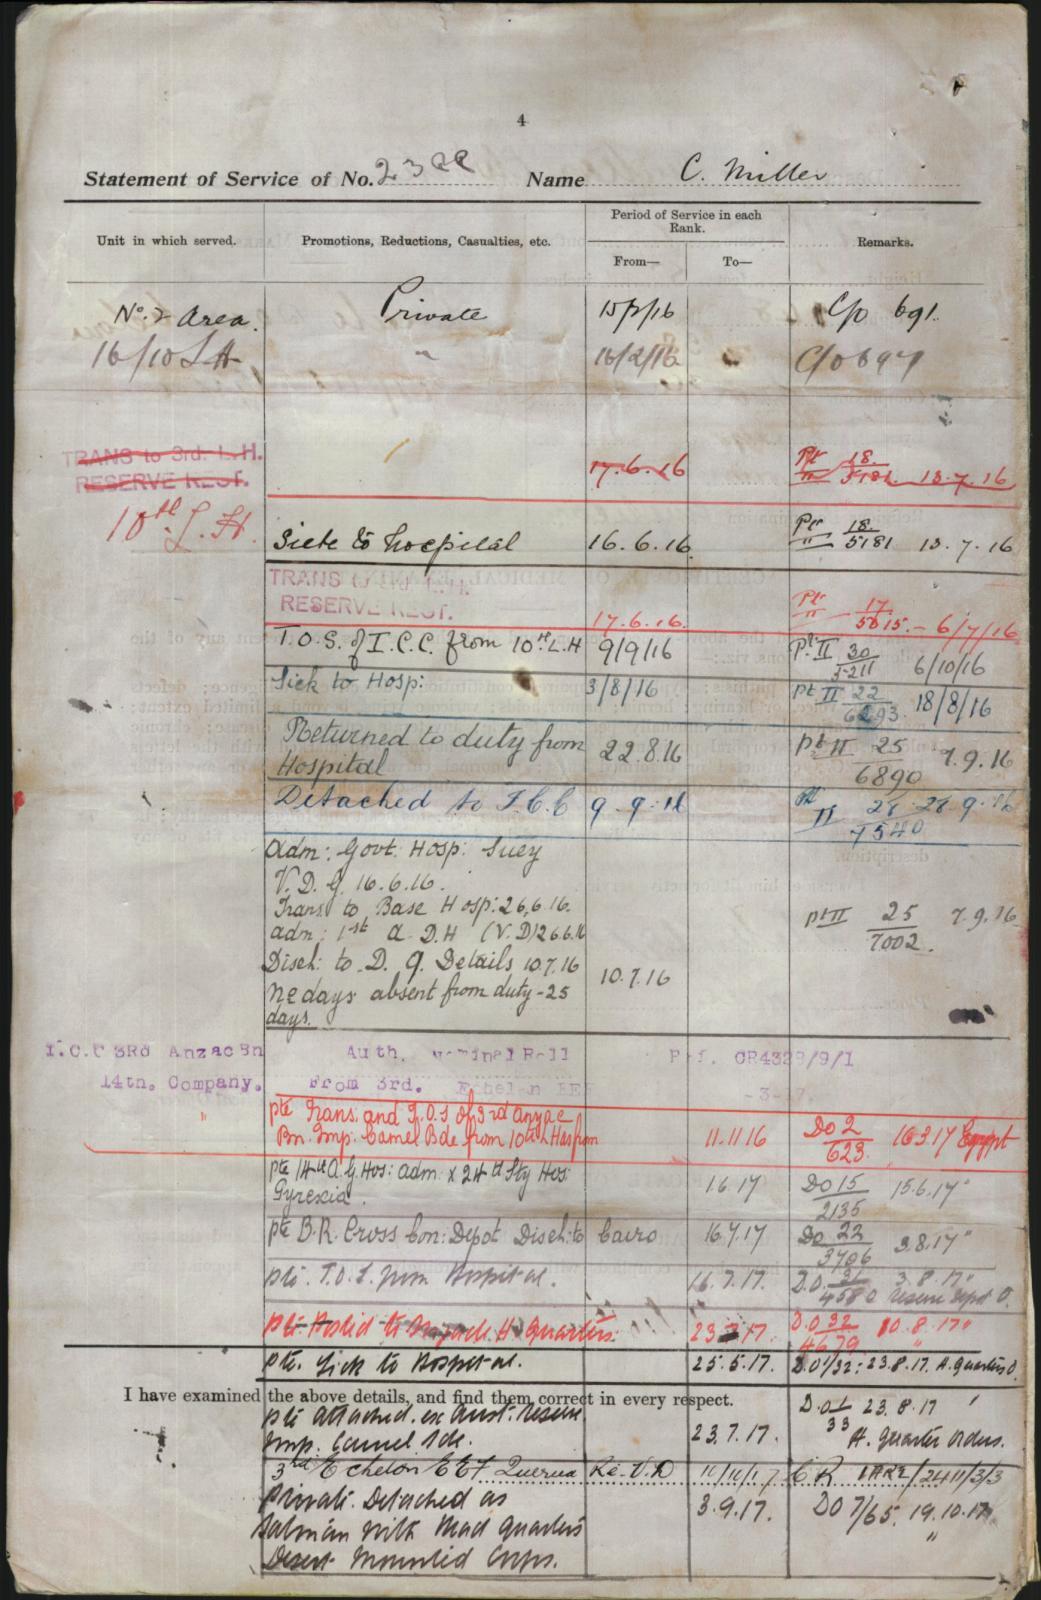 4
Statement of Service of No. Name C. Miller
Unit in which served. Promotions, Reductions, Casualties, etc. Period of Service in each Rank. Remarks.
From— To—
No. 2 Area. Private 15/2/16 C/o 691.
16/10 L.H. " 16/2/16 C/o 697
TRANS to 3rd. L.H. RESERVE REGT. 17.6.16 Pt II 18/5181 13.7.16
10th L.H. Sick to hospital 16.6.16 Pt II 18/5181 13.7.16
TRANS to 3rd L.H.
RESERVE REGT. 17.6.16. Pt II 17/5015 - 6/7/16
T.O.S. of I.C.C. from 10th L.H 9/9/16 Pt II 30/ 6/10/16
Sick to Hosp: 3/8/16 Pt II 22/6293 18/8/16
Returned to duty from
Hospital 22.8.16 Pt II 25/6890 7.9.16
Detached to I.C.C 9.9.16 Pt II 28/7540 28.9.16
Adm: Govt. Hosp: Suez
V.D.G. 16.6.16.
Trans to Base Hosp: 26.6.16. Pt II 25/7002. 7.9.16
adm: 1st A.D.H (V.D) 26.6.16
Disch: to D. G. Details 10.7.16 10.7.16
No days absent from duty - 25
days.
I.C.C 3Rd Anzac Bn Auth. Nominal Roll Ref. CR4329/9/1
14th. Company. From 3rd. Echelon EEF
" Pte Trans. and T.O.S of 3rd Anzac
Bn. Imp. Camel Bde from 10th L.H. 11.11.16 Do 2/623. 16.3.17 Egypt
Pte 14th A.G. Hos: adm x 24th Sty Hos:
Pyrexia. 1.6.17 Do 15/2135 15.6.17 "
Pte B.R. Cross Con: Depot Disch: to Cairo 16.7.17 Do 22/3706 3.8.17 "
Pte. T.O.S. from Hospital. 16.7.17. D.O. 31/ 3.8.17 "
Reserve Depot O.
Pte. Posted to H. Quarters. 23.7.17. D.O 32/4679 10.8.17 "
Pte. Sick to Hospital. 25.5.17. D.O 1/32: 23.8.17. H. Quarters O.
I have examined the above details, and find them correct in every respect.
Pte attached. ex Aust. Reserve D.O. 1/33 23.8.17 "
Imp. Camel Bde. 23.7.17. H. Quarter Orders.
3rd Echelon EEF Re V.D CR /2411/3/3
Private. Detached as 3.9.17. DO 7/65. 19.10.17
Batman with Head Quarters "
Desert Mounted Corps.